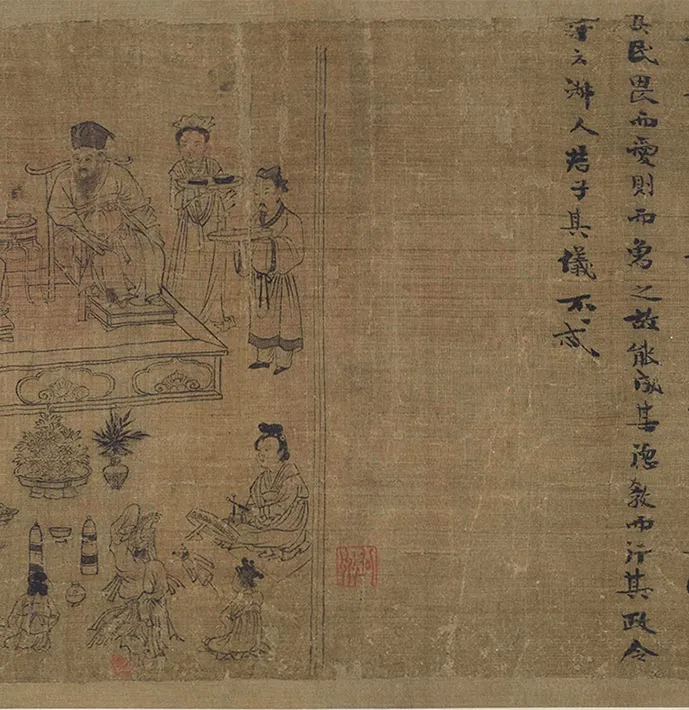 其民畏而愛則而象之故能成其德教而行其政令
詩云淑人君子其儀不忒